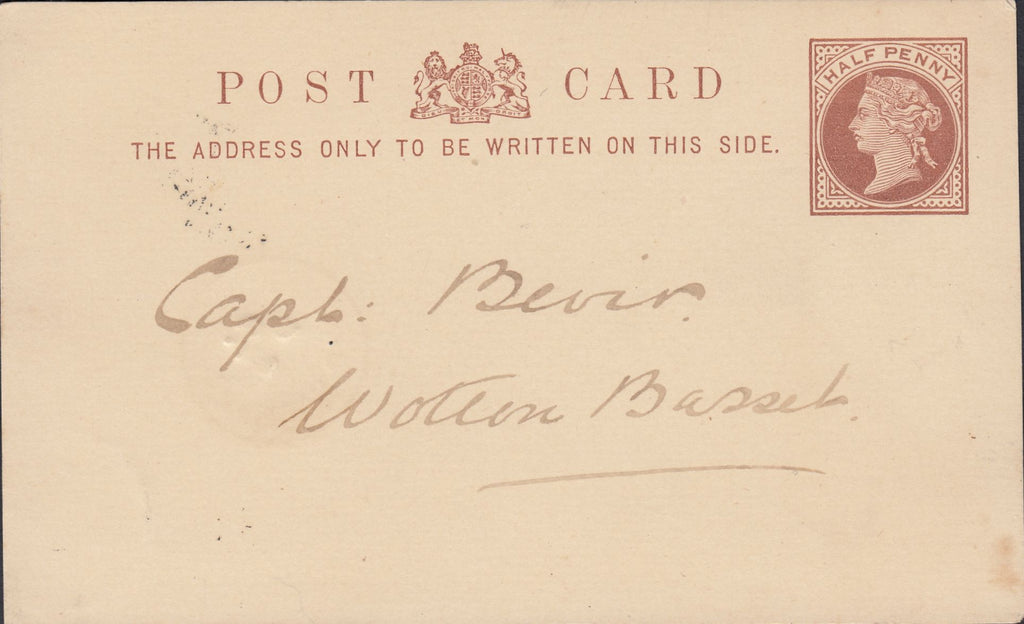 POST CARD
HALF PENNY
THE ADDRESS ONLY TO BE WRITTEN ON THIS SIDE.
Capt: Bevir.
Wotton Basset.